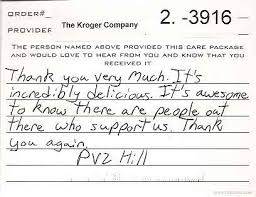 ORDER#
PROVIDER
The Kroger Company
2.-3916
THE PERSON NAMED ABOVE PROVIDED THIS CARE PACKAGE
AND WOULD LOVE TO HEAR FROM YOU AND KNOW THAT YOU
RECEIVED IT
Thank you very Much. It's
incredibly delicious. It's awesome
to know there are people out
there who support us. Thank
you again.
PV2 Hill